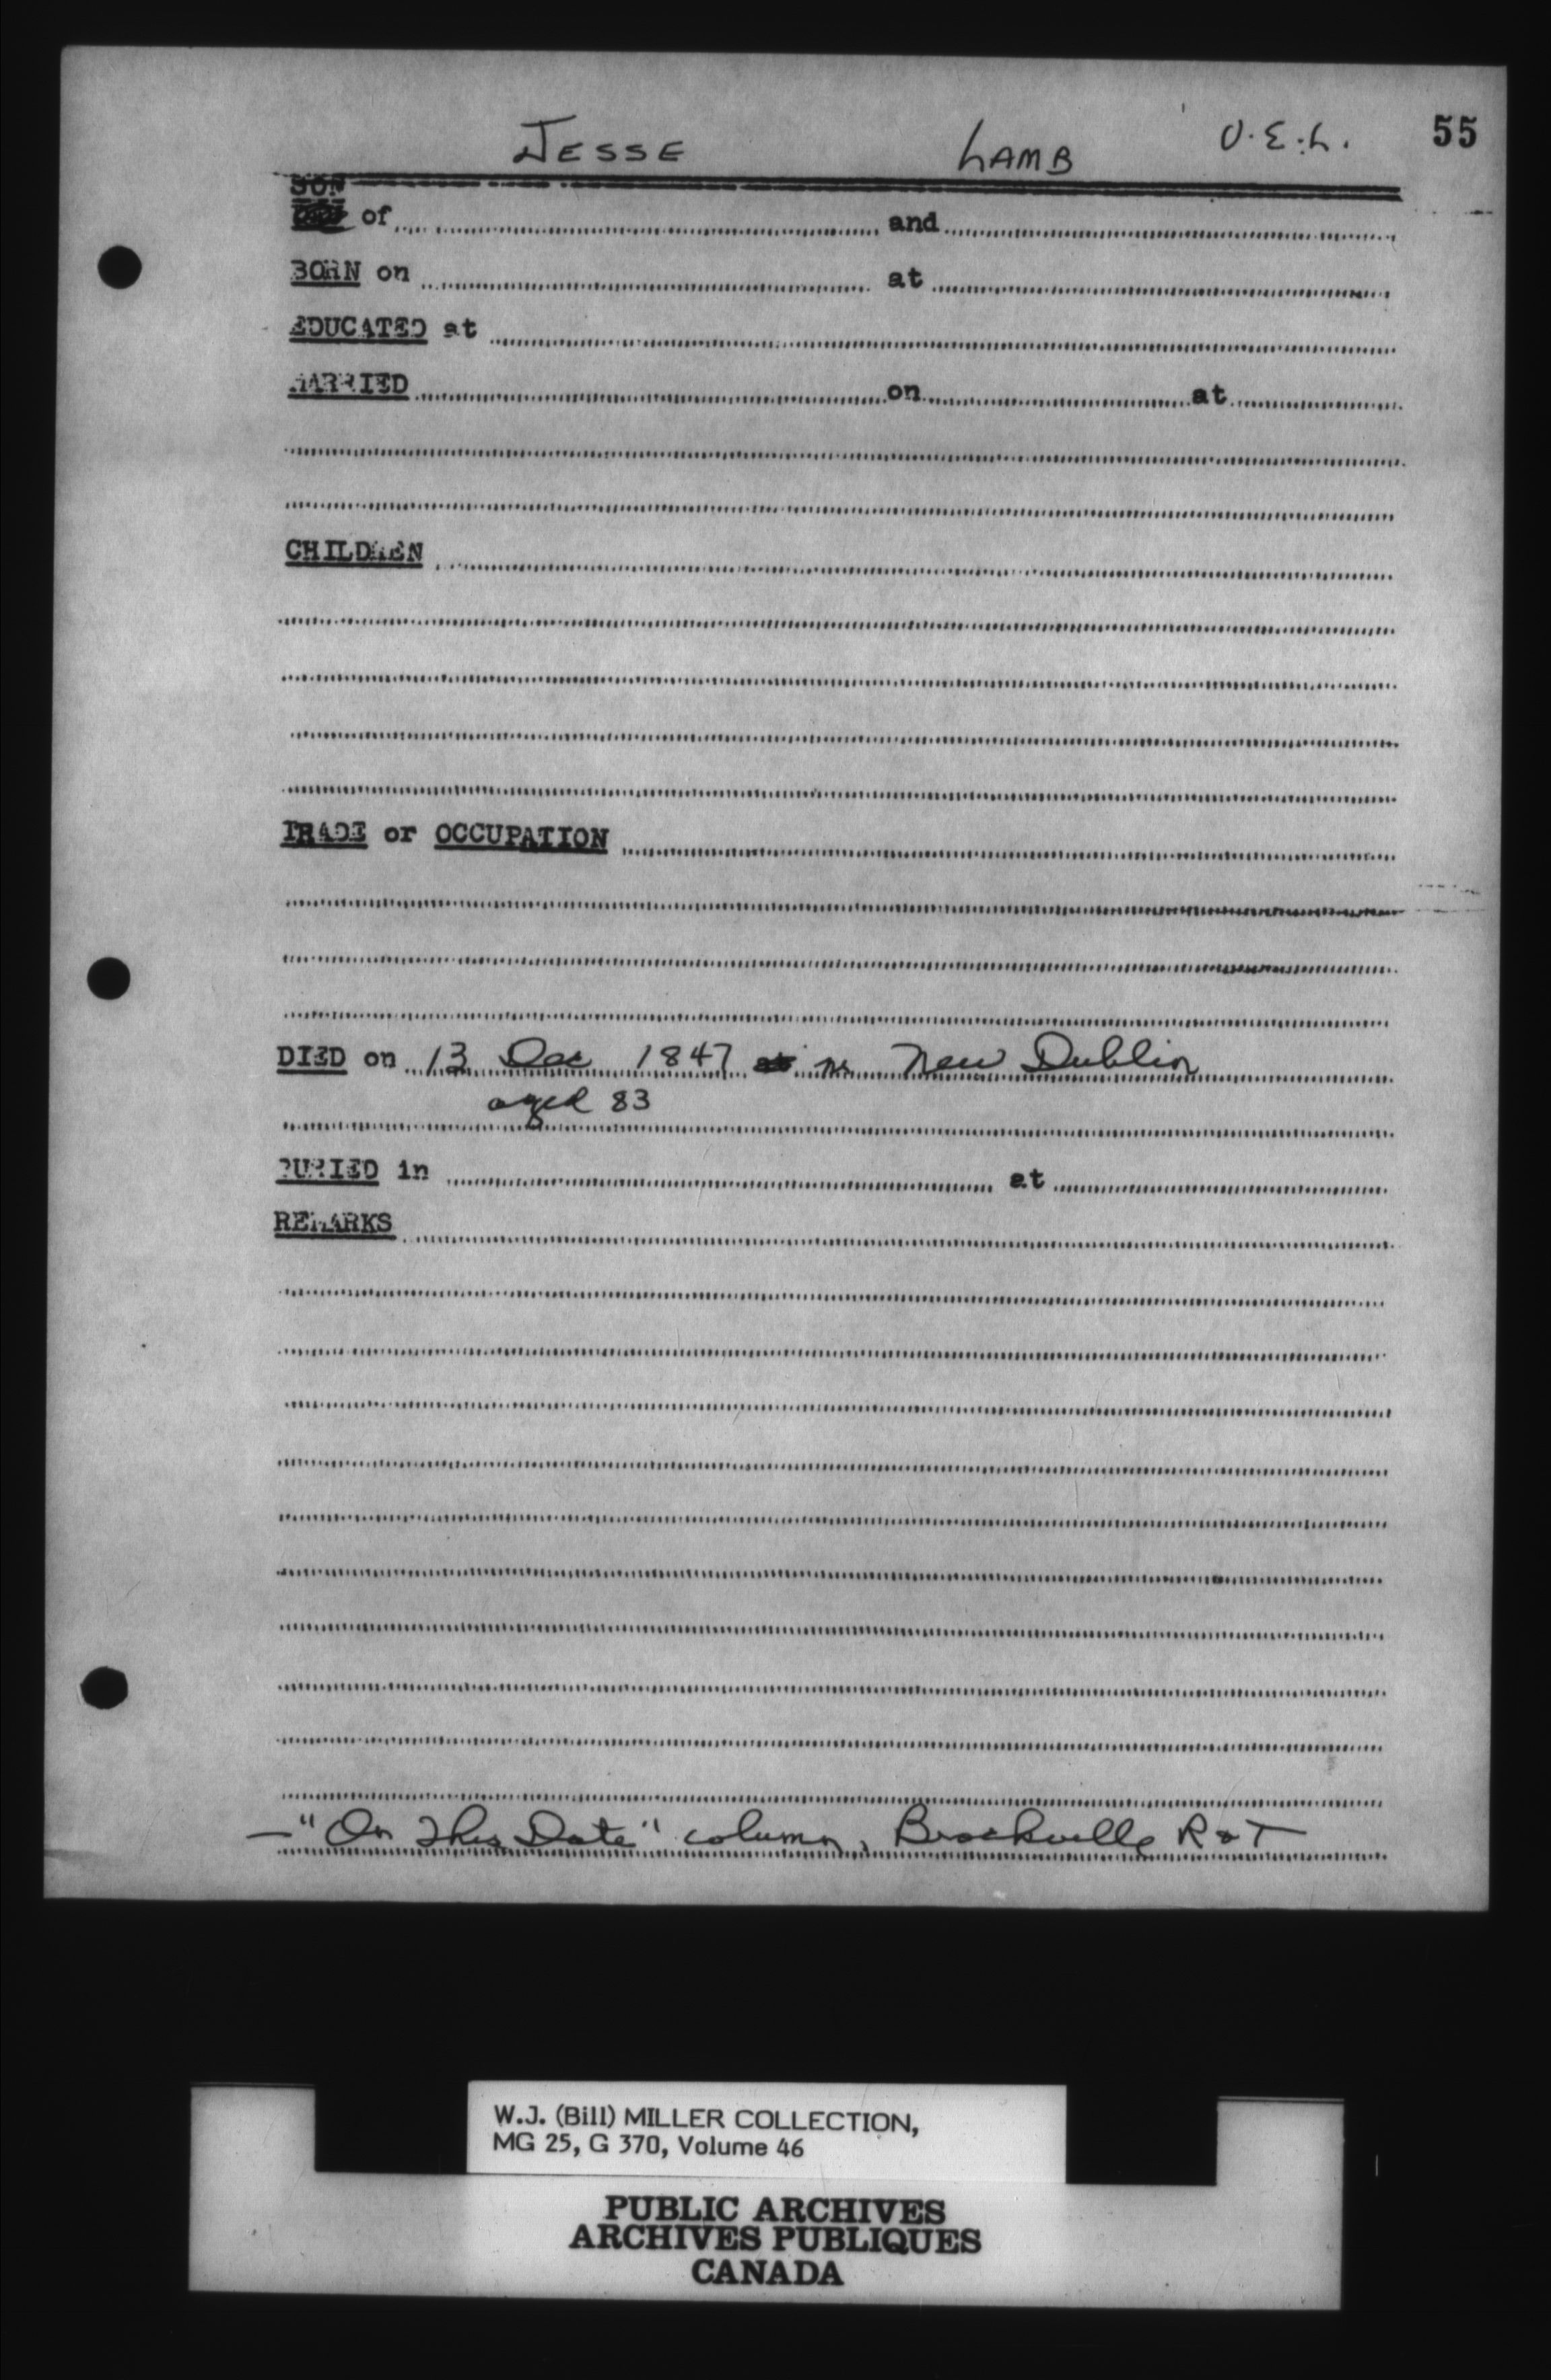 JESSE LAMB U.E.L. 55
SON
of and
BORN on at
EDUCATED at
MARRIED on at
CHILDREN
TRADE or OCCUPATION
DIED on 13 Dec 1847 nr New Dublin
aged 83
BURIED in at
REMARKS
—"On This Date" column, Brockville R & T
W.J. (Bill) MILLER COLLECTION,
MG 25, G 370, Volume 46
PUBLIC ARCHIVES
ARCHIVES PUBLIQUES
CANADA